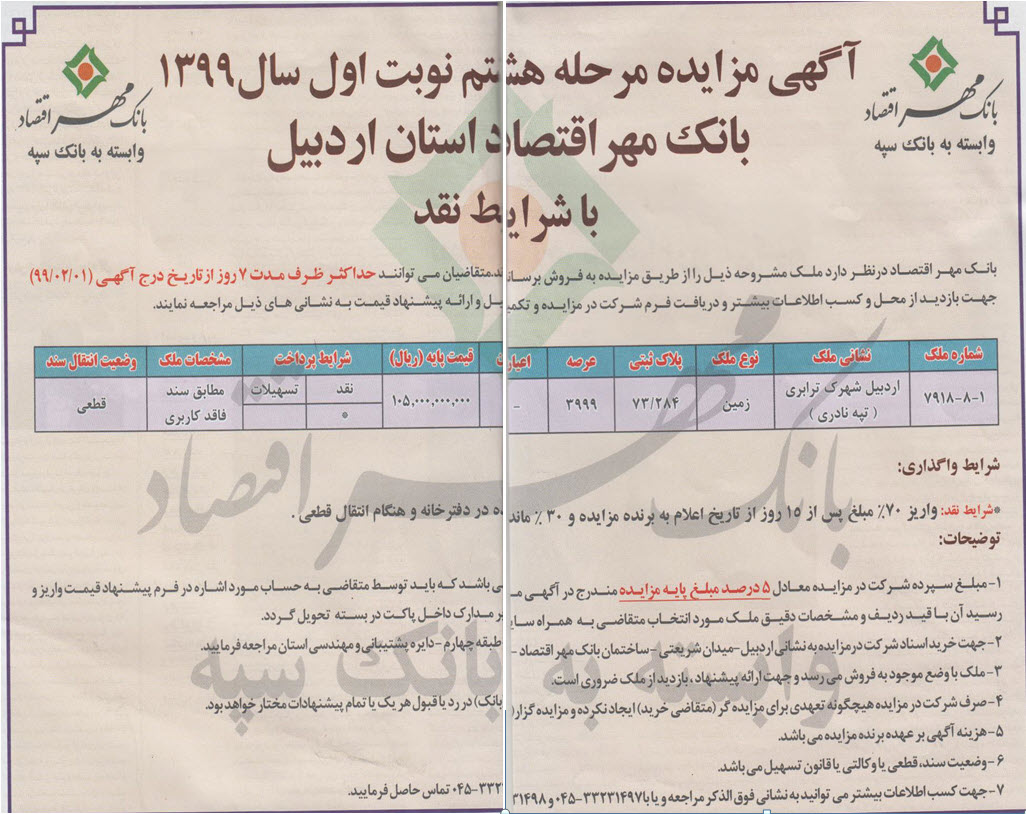 آگهی مزایده مرحله هشتم نوبت اول سال ۱۳۹۹
بانک مهر اقتصاد استان اردبیل
با شرایط نقد
بانک مهر اقتصاد
وابسته به بانک سپه
بانک مهر اقتصاد
وابسته به بانک سپه
بانک مهر اقتصاد درنظر دارد ملک مشروحه ذیل را از طریق مزایده به فروش برساند متقاضیان می توانند حداکثر ظرف مدت ۷ روز از تاریخ درج آگهی (۹۹/۰۲/۰۱)
جهت بازدید از محل و کسب اطلاعات بیشتر و دریافت فرم شرکت در مزایده و تکمیل و ارائه پیشنهاد قیمت به نشانی های ذیل مراجعه نمایند.
شماره ملک نشانی ملک نوع ملک پلاک ثبتی عرصه قیمت پایه (ریال) شرایط پرداخت مشخصات ملک وضعیت انتقال سند
۷۹۱۸-۸-۱ اردبیل شهرک ترابری (تپه نادری) زمین ۷۳/۲۸۴ ۳۹۹۹ - ۱۰۵,۰۰۰,۰۰۰,۰۰۰ نقد تسهیلات * مطابق سند فاقد کاربری قطعی
شرایط واگذاری:
*شرایط نقد: واریز ۷۰٪ مبلغ پس از ۱۵ روز از تاریخ اعلام به برنده مزایده و ۳۰٪ مانده در دفترخانه و هنگام انتقال قطعی.
توضیحات:
۱-مبلغ سپرده شرکت در مزایده معادل ۵ درصد مبلغ پایه مزایده مندرج در آگهی می باشد که باید توسط متقاضی به حساب مورد اشاره در فرم پیشنهاد قیمت واریز و
رسید آن با قید ردیف و مشخصات دقیق ملک مورد انتخاب متقاضی به همراه سایر مدارک داخل پاکت در بسته تحویل گردد.
۲-جهت خرید اسناد شرکت در مزایده به نشانی اردبیل-میدان شریعتی-ساختمان بانک مهر اقتصاد-طبقه چهارم-دایره پشتیبانی و مهندسی استان مراجعه فرمایید.
۳-ملک با وضع موجود به فروش می رسد و جهت ارائه پیشنهاد، بازدید از ملک ضروری است.
۴-صرف شرکت در مزایده هیچگونه تعهدی برای مزایده گر (متقاضی خرید) ایجاد نکرده و مزایده گزار (بانک) در رد یا قبول هر یک یا تمام پیشنهادات مختار خواهد بود.
۵-هزینه آگهی بر عهده برنده مزایده می باشد.
۶-وضعیت سند، قطعی یا وکالتی یا قانون تسهیل می باشد.
۷-جهت کسب اطلاعات بیشتر می توانید به نشانی فوق الذکر مراجعه و یا با ۳۳۲۳۱۴۹۷-۰۴۵ و ۰۴۵-۳۳۲ تماس حاصل فرمایید.
بانک مهر اقتصاد
وابسته به بانک سپه